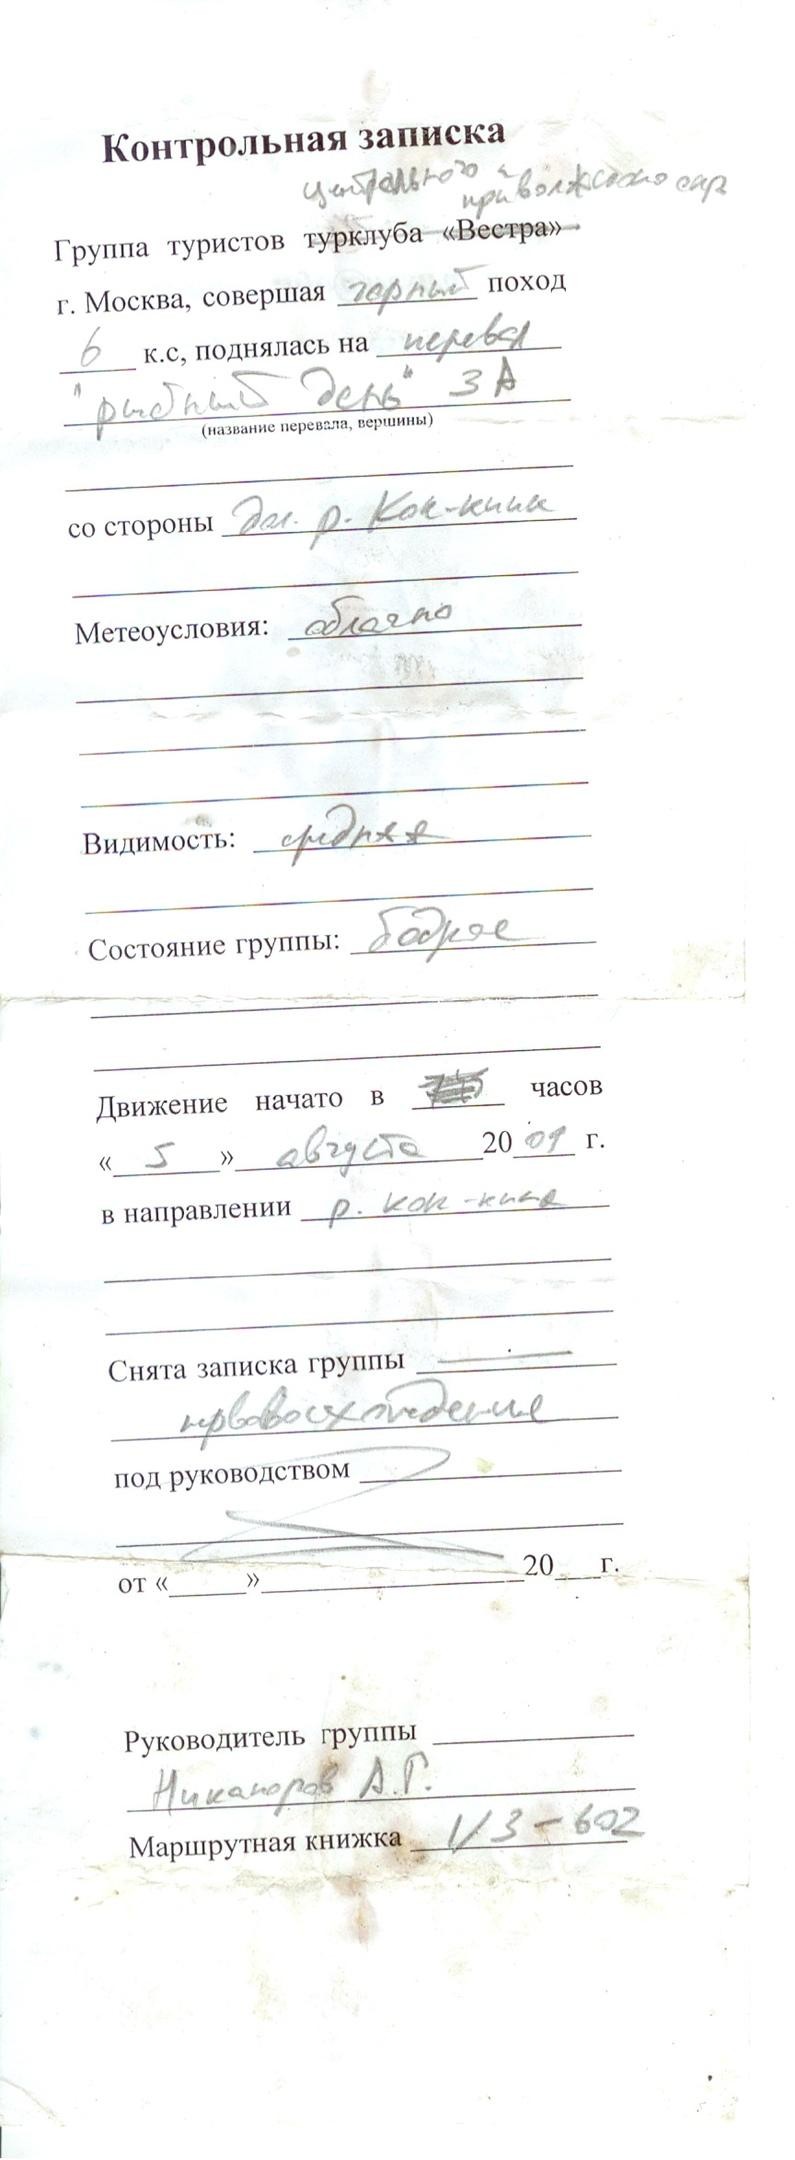 Контрольная записка
центрального и
приволжского окр
Группа туристов турклуба «Вестра»
г. Москва, совершая горный поход
6 к.с, поднялась на перевал
"рыбный день" 3А
(название перевала, вершины)
со стороны дол. р. Кок-киик
Метеоусловия: облачно
Видимость: средняя
Состояние группы: бодрое
Движение начато в часов
« 5 » августа 2009 г.
в направлении р. кок-киик
Снята записка группы —
первовосхождение
под руководством
от « » 20 г.
Руководитель группы
Никаноров А.Г.
Маршрутная книжка 1/3-602